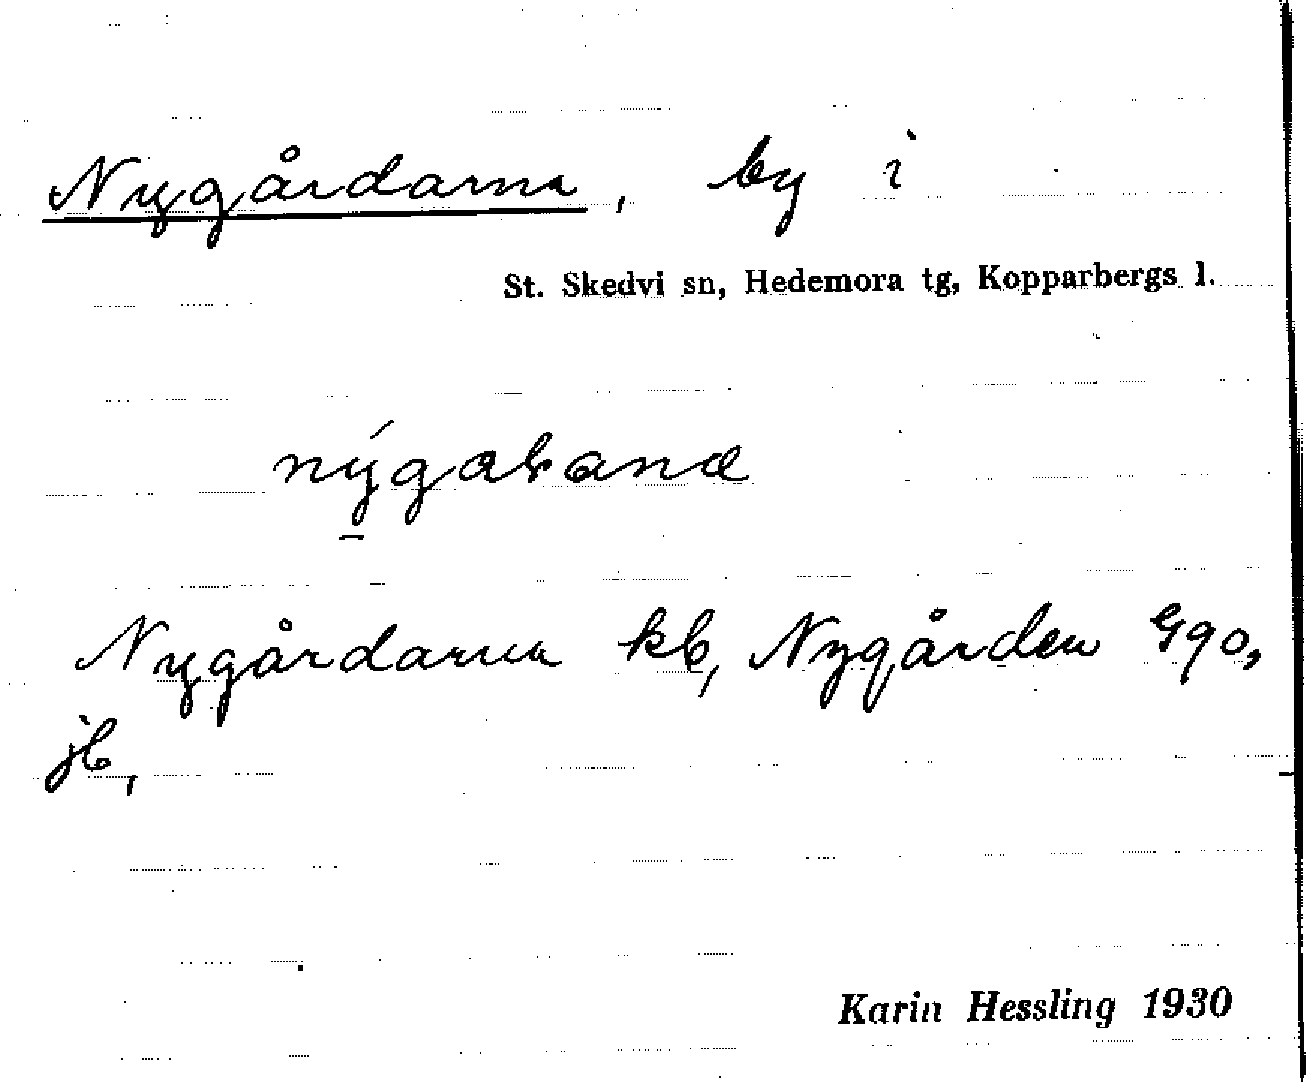 Nygårdarna, by i
St. Skedvi sn, Hedemora tg, Kopparbergs l.
Nygårdarna kb, Nygården Gqo,
jb,
Karin Hessling 1930